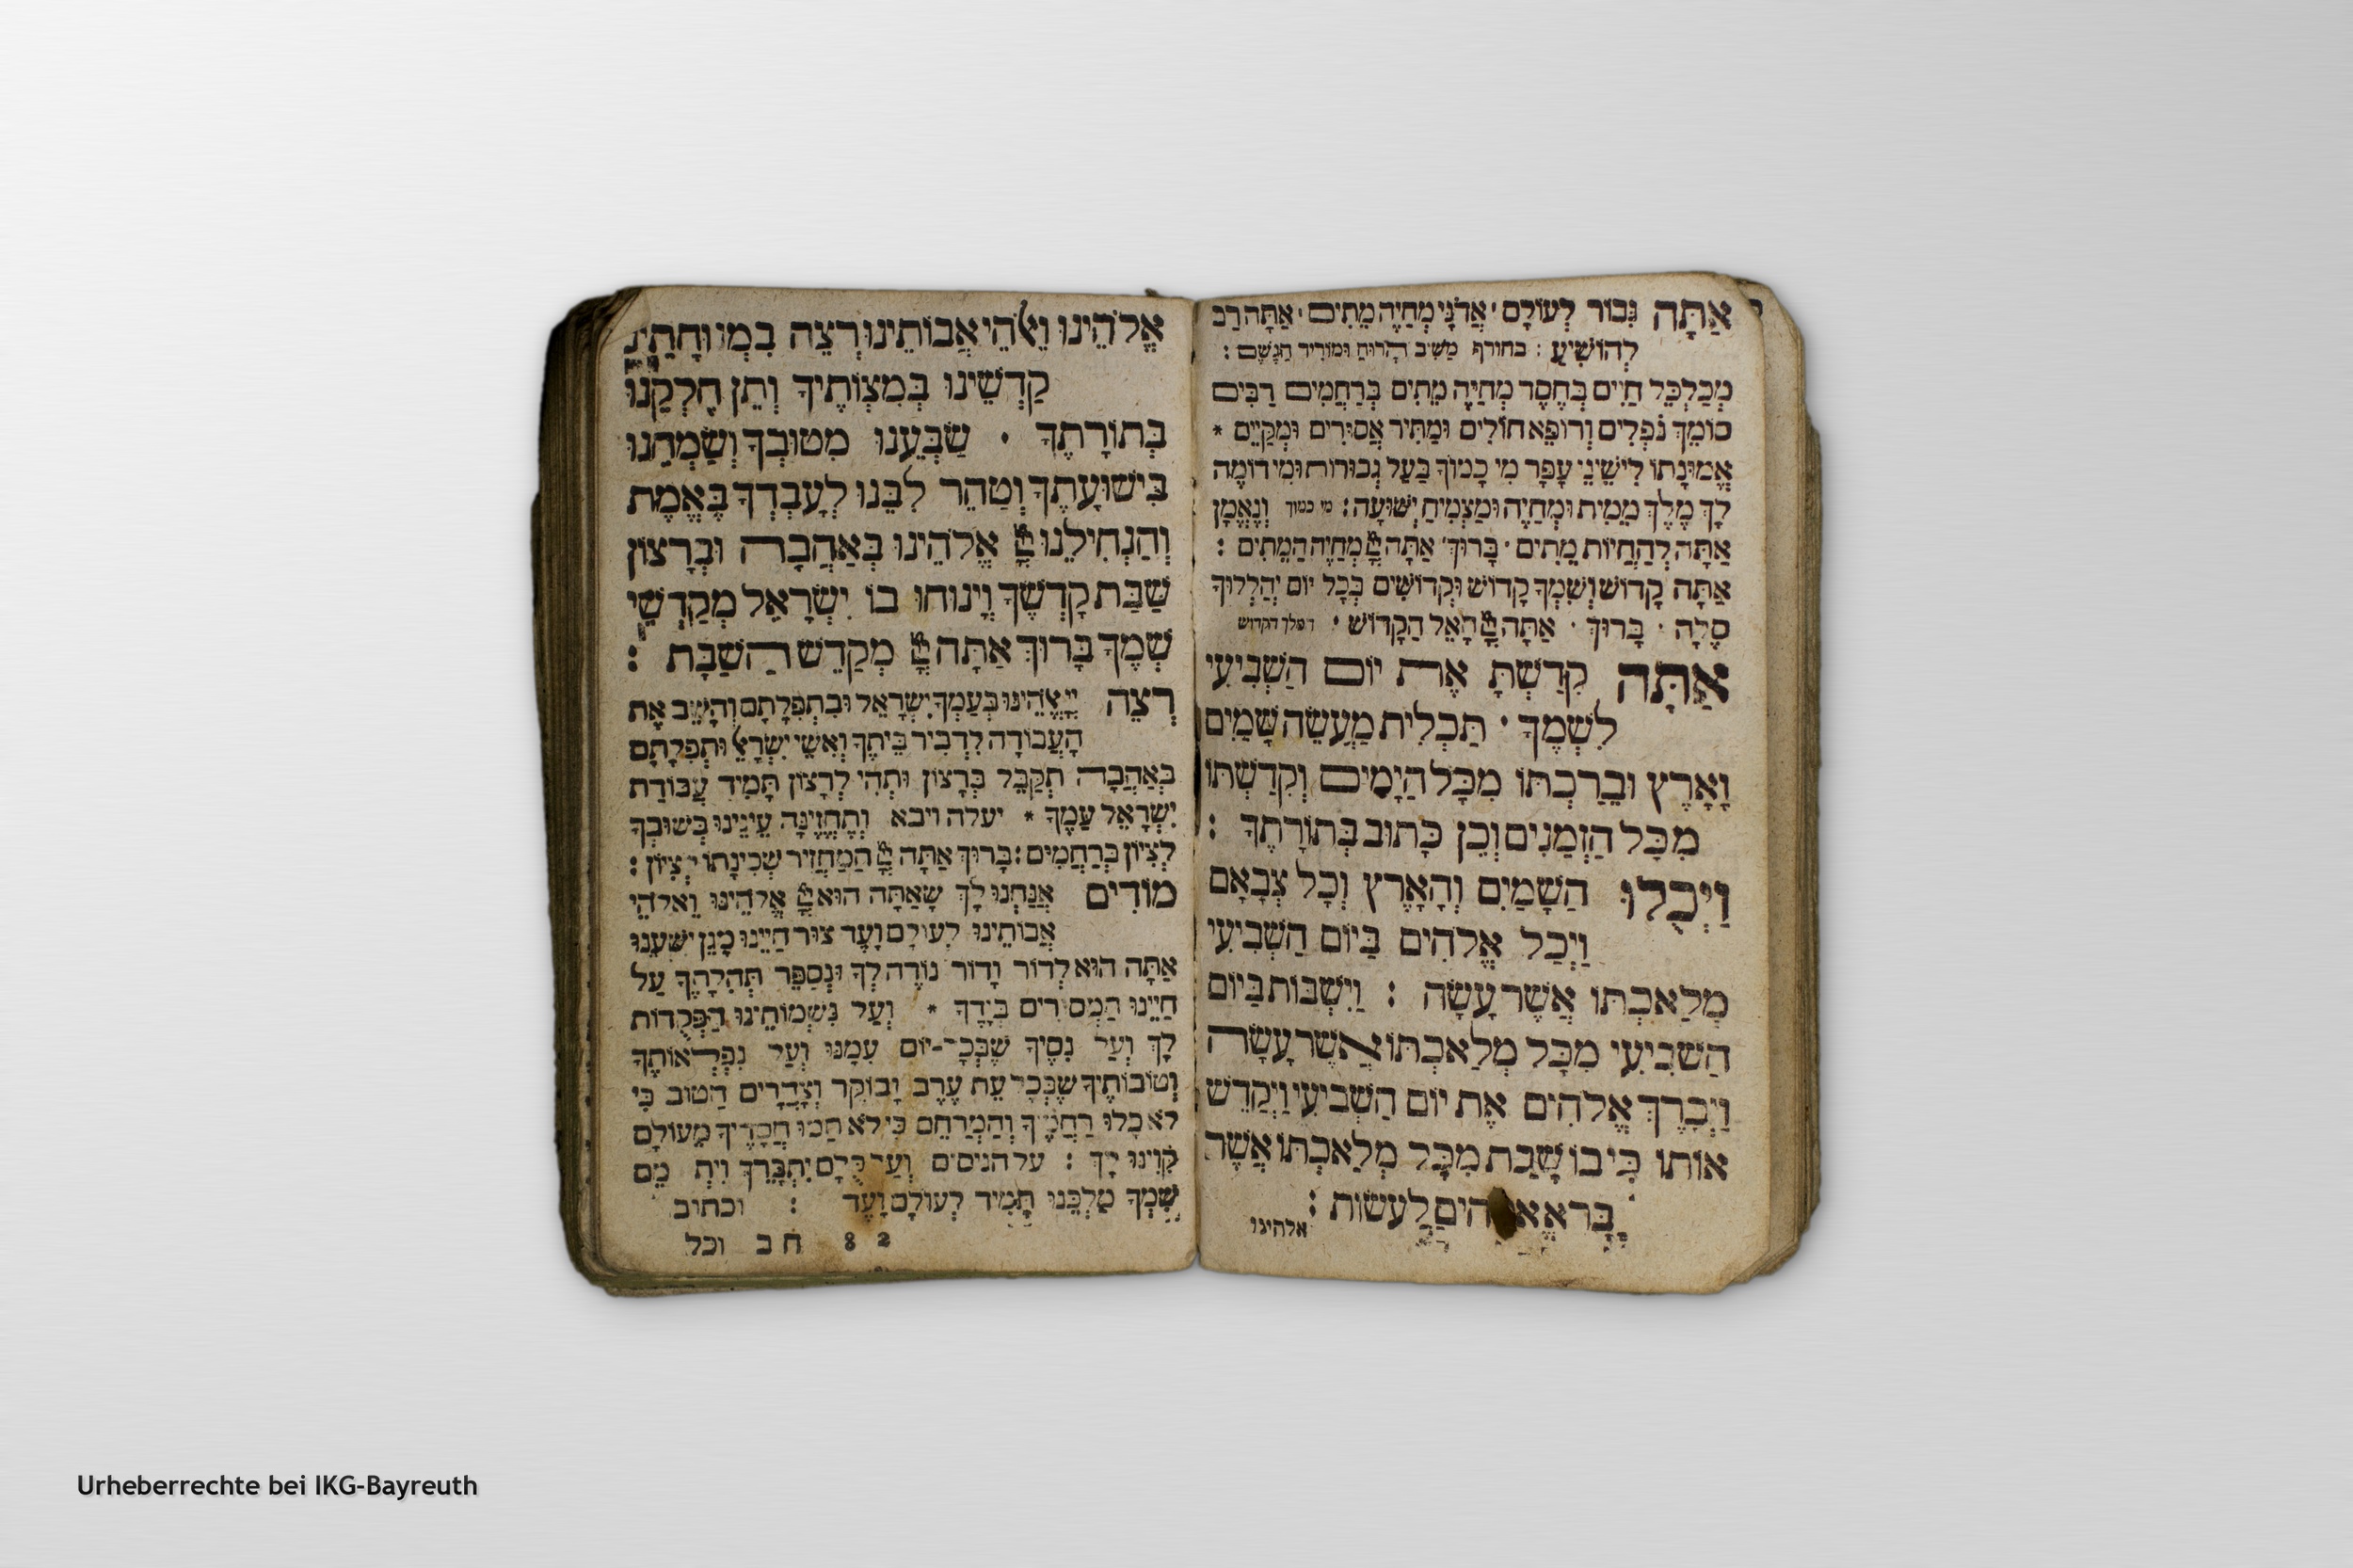 אַתָּה גִּבּוֹר לְעוֹלָם · אֲדֹנָי מְחַיֶּה מֵתִים · אַתָּה רַב
לְהוֹשִׁיעַ : בחורף מַשִּׁיב הָרוּחַ וּמוֹרִיד הַגֶּשֶׁם :
מְכַלְכֵּל חַיִּים בְּחֶסֶד מְחַיֶּה מֵתִים בְּרַחֲמִים רַבִּים
סוֹמֵךְ נֹפְלִים וְרוֹפֵא חוֹלִים וּמַתִּיר אֲסוּרִים וּמְקַיֵּים *
אֱמוּנָתוֹ לִישֵׁינֵי עָפָר מִי כָמוֹךָ בַּעַל גְּבוּרוֹת וּמִי דוֹמֶה
לָךְ מֶלֶךְ מֵמִית וּמְחַיֶּה וּמַצְמִיחַ יְשׁוּעָה : מי כמוך וְנֶאֱמָן
אַתָּה לְהַחֲיוֹת מֵתִים · בָּרוּךְ אַתָּה יְיָ מְחַיֵּה הַמֵּתִים :
אַתָּה קָדוֹשׁ וְשִׁמְךָ קָדוֹשׁ וּקְדוֹשִׁים בְּכָל יוֹם יְהַלְלוּךָ
סֶלָה · בָּרוּךְ · אַתָּה יְיָ הָאֵל הַקָּדוֹשׁ · המלך הקדוש
אַתָּה קִדַּשְׁתָּ אֶת יוֹם הַשְּׁבִיעִי
לִשְׁמֶךָ · תַּכְלִית מַעֲשֵׂה שָׁמַיִם
וָאָרֶץ וּבֵרַכְתּוֹ מִכָּל הַיָמִים וְקִדַּשְׁתּוֹ
מִכָּל הַזְּמַנִים וְכֵן כָּתוּב בְּתוֹרָתֶךָ :
וַיְכֻלּוּ הַשָּׁמַיִם וְהָאָרֶץ וְכָל צְבָאָם
וַיְכַל אֱלֹהִים בַּיּוֹם הַשְּׁבִיעִי
מְלַאכְתּוֹ אֲשֶׁר עָשָׂה : וַיִּשְׁבּוֹת בַּיּוֹם
הַשְּׁבִיעִי מִכָּל מְלַאכְתּוֹ אֲשֶׁר עָשָׂה
וַיְבָרֶךְ אֱלֹהִים אֶת יוֹם הַשְּׁבִיעִי וַיְקַדֵּשׁ
אוֹתוֹ כִּי בוֹ שָׁבַת מִכָּל מְלַאכְתּוֹ אֲשֶׁר
בָּרָא לַעֲשׂוֹת :
אלהינו
אֱלֹהֵינוּ וֵאלֹהֵי אֲבוֹתֵינוּ רְצֵה
קַדְּשֵׁינוּ בְּמִצְוֹתֶיךָ וְתֵן חֶלְקֵנוּ
בְּתוֹרָתֶךָ · שַׂבְּעֵנוּ מִטּוּבְךָ וְשַׂמְּחֵנוּ
בִּישׁוּעָתֶךָ וְטַהֵר לִבֵּנוּ לְעָבְדְךָ בֶּאֱמֶת
וְהַנְחִילֵנוּ יְיָ אֱלֹהֵינוּ בְּאַהֲבָה וּבְרָצוֹן
שַׁבַּת קָדְשֶׁךָ וְיָנוּחוּ בוֹ יִשְׂרָאֵל מְקַדְּשֵׁי
שְׁמֶךָ בָּרוּךְ אַתָּה יְיָ מְקַדֵּשׁ הַשַּׁבָּת :
רְצֵה יְיָ אֱלֹהֵינוּ בְּעַמְּךָ יִשְׂרָאֵל וּבִתְפִלָּתָם וְהָשֵׁב אֶת
הָעֲבוֹדָה לִדְבִיר בֵּיתֶךָ וְאִשֵּׁי יִשְׂרָאֵל וּתְפִלָּתָם
בְּאַהֲבָה תְקַבֵּל בְּרָצוֹן וּתְהִי לְרָצוֹן תָּמִיד עֲבוֹדַת
יִשְׂרָאֵל עַמֶּךָ * יעלה ויבא וְתֶחֱזֶינָה עֵינֵינוּ בְּשׁוּבְךָ
לְצִיּוֹן בְּרַחֲמִים : בָּרוּךְ אַתָּה יְיָ הַמַּחֲזִיר שְׁכִינָתוֹ לְצִיּוֹן :
מוֹדִים אֲנַחְנוּ לָךְ שָׁאַתָּה הוּא יְיָ אֱלֹהֵינוּ וֵאלֹהֵי
אֲבוֹתֵינוּ לְעוֹלָם וָעֶד צוּר חַיֵּינוּ מָגֵן יִשְׁעֵנוּ
אַתָּה הוּא לְדוֹר וָדוֹר נוֹדֶה לְךָ וּנְסַפֵּר תְּהִלָּתֶךָ עַל
חַיֵּינוּ הַמְּסוּרִים בְּיָדֶךָ * וְעַל נִשְׁמוֹתֵינוּ הַפְּקֻדוֹת
לָךְ וְעַל נִסֶּיךָ שֶׁבְּכָל יוֹם עִמָּנוּ וְעַל נִפְלְאוֹתֶיךָ
וְטוֹבוֹתֶיךָ שֶׁבְּכָל עֵת עֶרֶב וָבוֹקֶר וְצָהֳרָיִם הַטּוֹב כִּי
לֹא כָלוּ רַחֲמֶיךָ וְהַמְרַחֵם כִּי לֹא תַמּוּ חֲסָדֶיךָ מֵעוֹלָם
קִוִּינוּ לָךְ : על הניסים וְעַל כֻּלָּם יִתְבָּרֵךְ
שִׁמְךָ מַלְכֵּנוּ תָּמִיד לְעוֹלָם וָעֶד : וכתוב
82 ח ב וכל
Urheberrechte bei IKG-Bayreuth